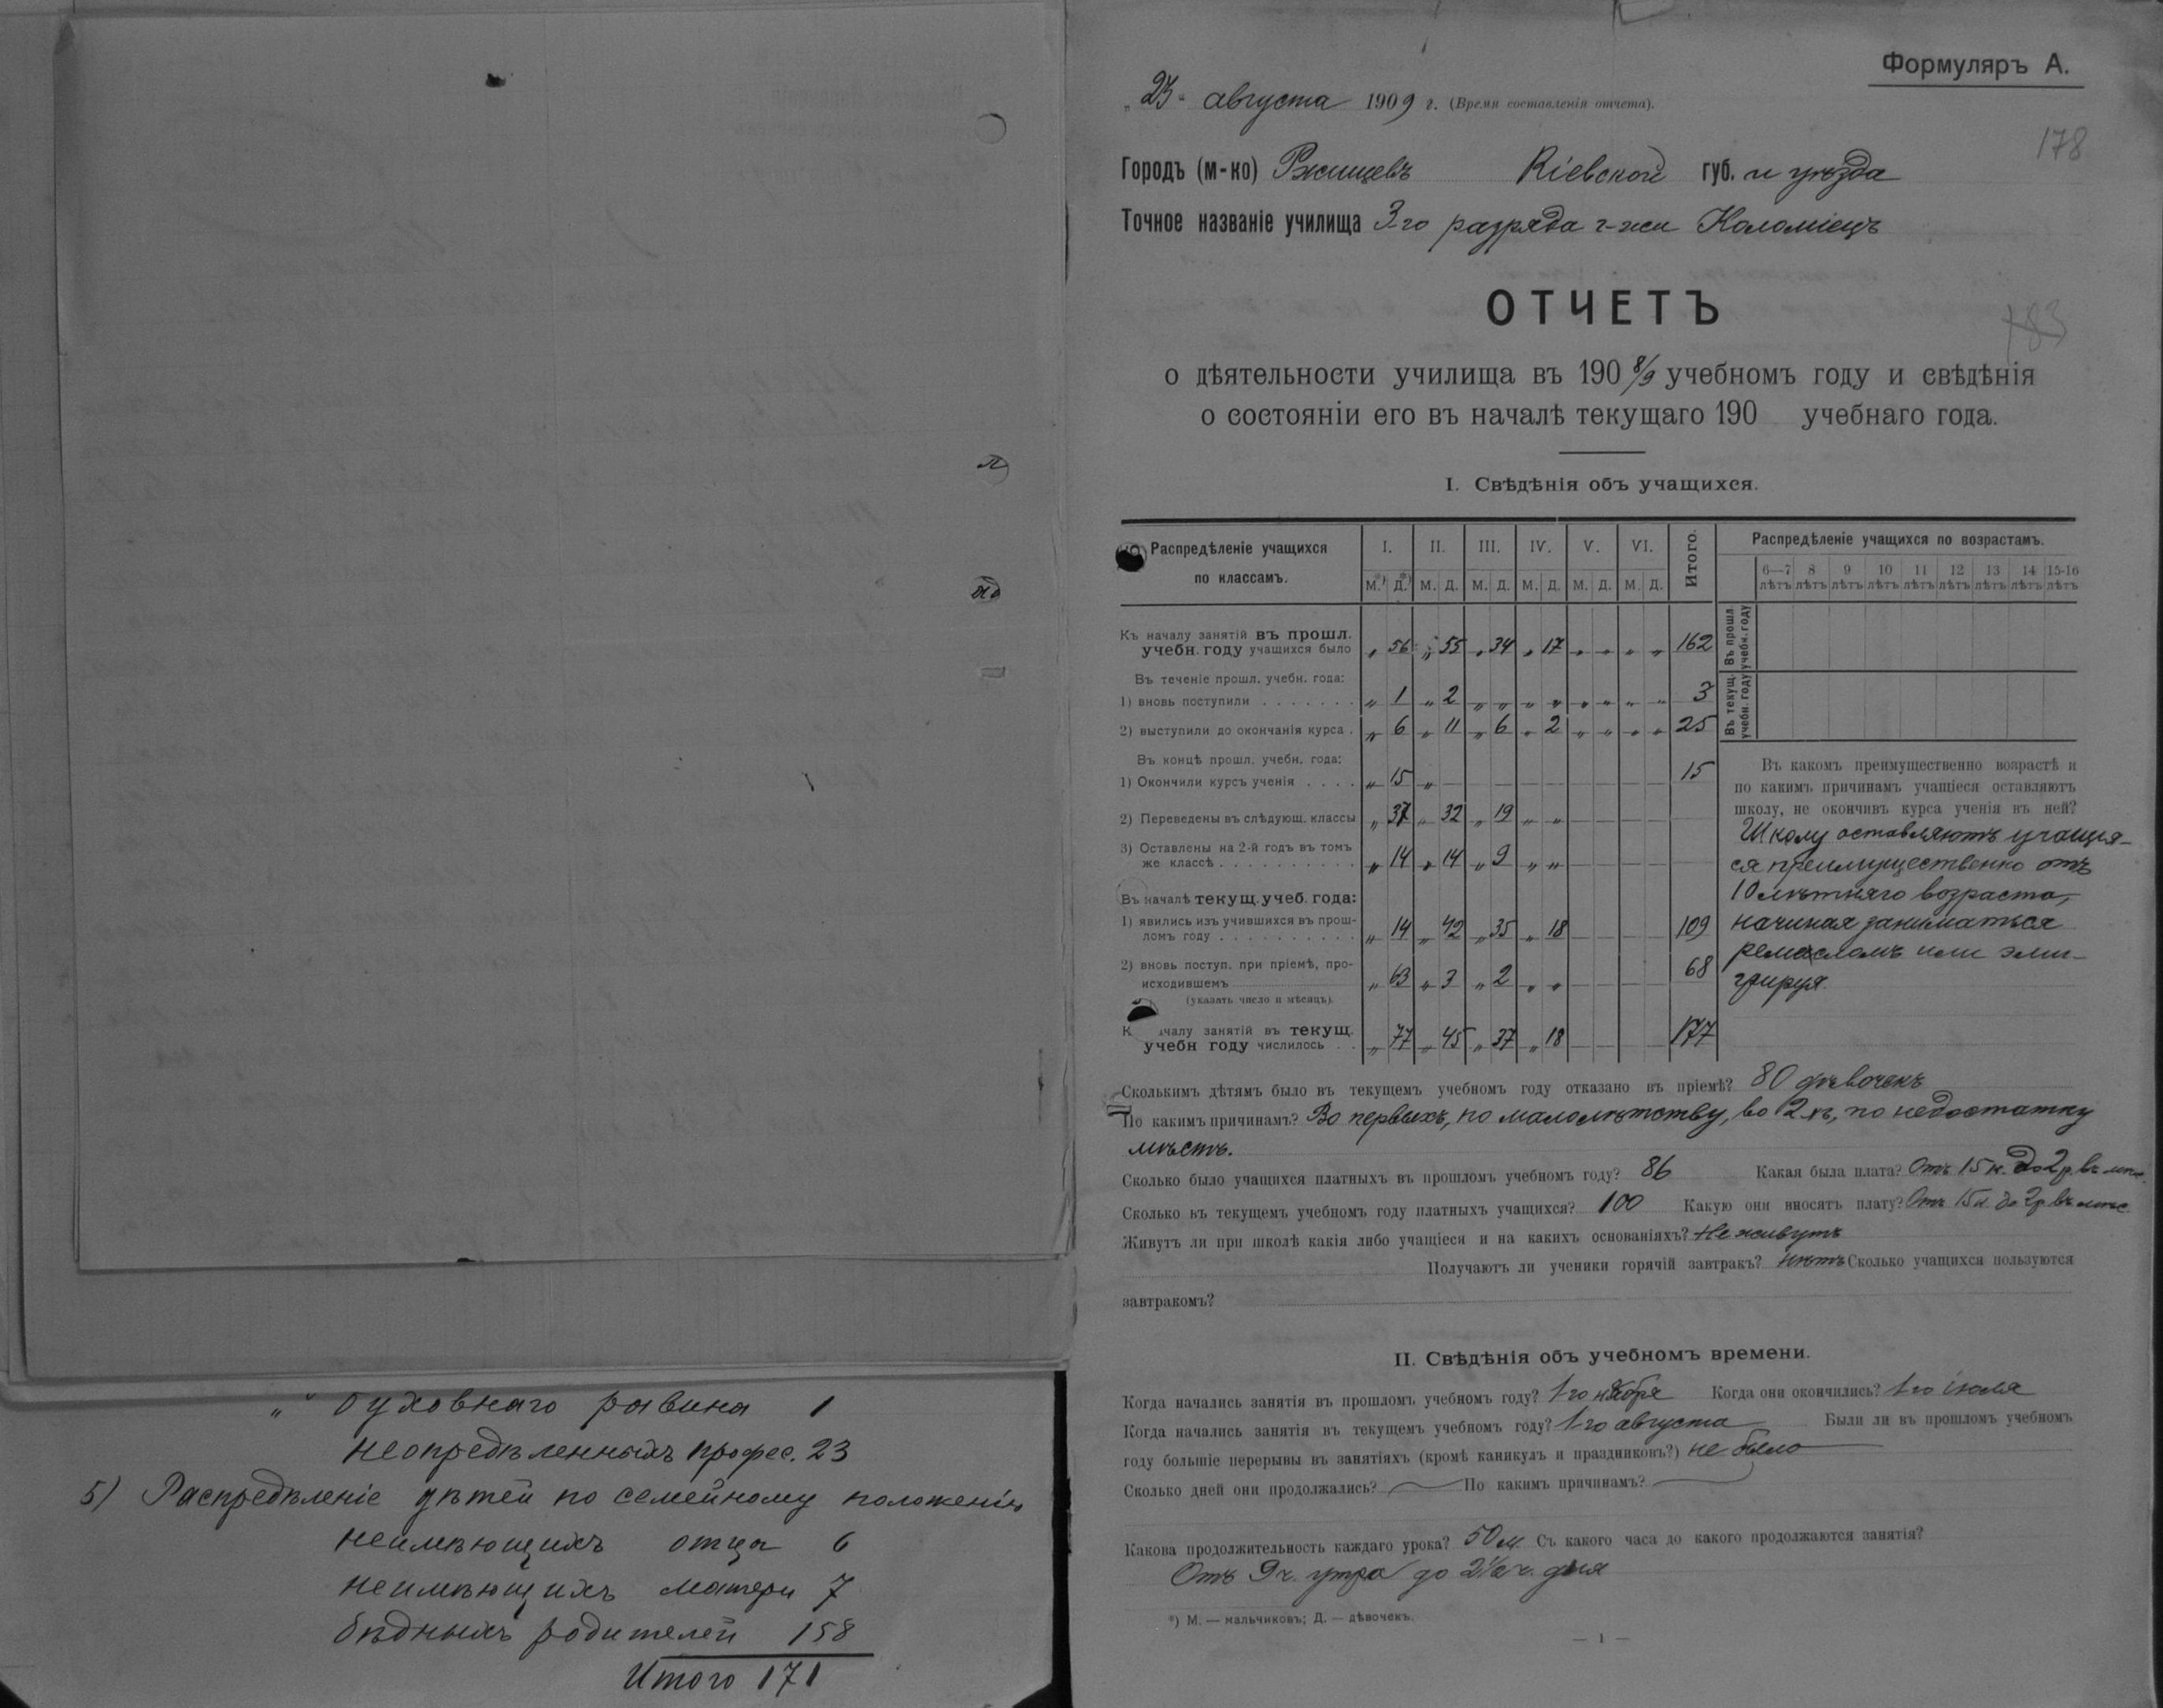 " духовнаго равина 1
неопредѣленныхъ профес. 23
5) Распредѣленіе дѣтей по семейному положенію
неимѣющихъ отца 6
неимѣющихъ матери 7
бѣдныхъ родителей 158
Итого 171
Формуляръ А.
„23" августа 1909 г. (Время составленія отчета).
178
Городъ (м-ко) Ржищевъ Кіевской губ. и уѣзда
Точное названіе училища 3-го разряда г-жи Коломіецъ
ОТЧЕТЪ
183
о дѣятельности училища въ 190 8/9 учебномъ году и свѣдѣнія
о состояніи его въ началѣ текущаго 190 учебнаго года.
I. Свѣдѣнія объ учащихся.
Распредѣленіе учащихся по классамъ. I. II. III. IV. V. VI. Итого.
М.*) Д.*) М. Д. М. Д. М. Д. М. Д. М. Д.
Къ началу занятій въ прошл.
учебн. году учащихся было „ 56 „ 55 „ 34 „ 17 „ „ „ „ 162
Въ теченіе прошл. учебн. года:
1) вновь поступили . . . . . . . „ 1 „ 2 „ „ „ „ „ „ „ „ 3
2) выступили до окончанія курса . „ 6 „ 11 „ 6 „ 2 „ „ „ „ 25
Въ концѣ прошл. учебн. года:
1) Окончили курсъ ученія . . . . „ 15 „ — — — — — — — — — 15
2) Переведены въ слѣдующ. классы „ 37 „ 32 „ 19 „ „
3) Оставлены на 2-й годъ въ томъ
же классѣ . . . . . . . . . . . „ 14 „ 14 „ 9 „ „ — — — —
Въ началѣ текущ. учеб. года:
1) явились изъ учившихся въ прош-
ломъ году . . . . . . . . . . . „ 14 „ 42 „ 35 „ 18 — — — — 109
2) вновь поступ. при пріемѣ, про-
исходившемъ „ 63 „ 3 „ 2 „ „ — — — — 68
(указать число и мѣсяцъ).
К чалу занятій въ текущ.
учебн году числилось . . „ 77 „ 45 „ 37 „ 18 — — — — 177
Распредѣленіе учащихся по возрастамъ.
6—7 8 9 10 11 12 13 14 15-16
лѣтъ лѣтъ лѣтъ лѣтъ лѣтъ лѣтъ лѣтъ лѣтъ лѣтъ
Въ прошл. учебн. году
Въ текущ. учебн. году
Въ какомъ преимущественно возрастѣ и
по какимъ причинамъ учащіеся оставляютъ
школу, не окончивъ курса ученія въ ней?
Школу оставляютъ учащія-
ся преимущественно отъ
10 лѣтняго возраста,
начиная заниматься
ремесломъ или эми-
грируя.
Сколькимъ дѣтямъ было въ текущемъ учебномъ году отказано въ пріемѣ? 80 дѣвочекъ
По какимъ причинамъ? Во первыхъ, по малолѣтству, во 2-хъ, по недостатку
мѣстъ.
Сколько было учащихся платныхъ въ прошломъ учебномъ году? 86 Какая была плата? Отъ 15 к. до 2 р. въ мѣс.
Сколько въ текущемъ учебномъ году платныхъ учащихся? 100 Какую они вносятъ плату? Отъ 15 к. до 2 р въ мѣс
Живутъ ли при школѣ какія либо учащіеся и на какихъ основаніяхъ? Не живутъ
Получаютъ ли ученики горячій завтракъ? нѣтъ Сколько учащихся пользуются
завтракомъ?
II. Свѣдѣнія объ учебномъ времени.
Когда начались занятія въ прошломъ учебномъ году? 1-го ноября Когда они окончились? 1-го іюля
Когда начались занятія въ текущемъ учебномъ году? 1-го августа Были ли въ прошломъ учебномъ
году большіе перерывы въ занятіяхъ (кромѣ каникулъ и праздниковъ?) не было
Сколько дней они продолжались? — По какимъ причинамъ? —
Какова продолжительность каждаго урока? 50 м. Съ какого часа до какого продолжаются занятія?
Отъ 9 ч. утра до 2½ ч. дня
*) М. — мальчиковъ; Д. — дѣвочекъ.
— 1 —